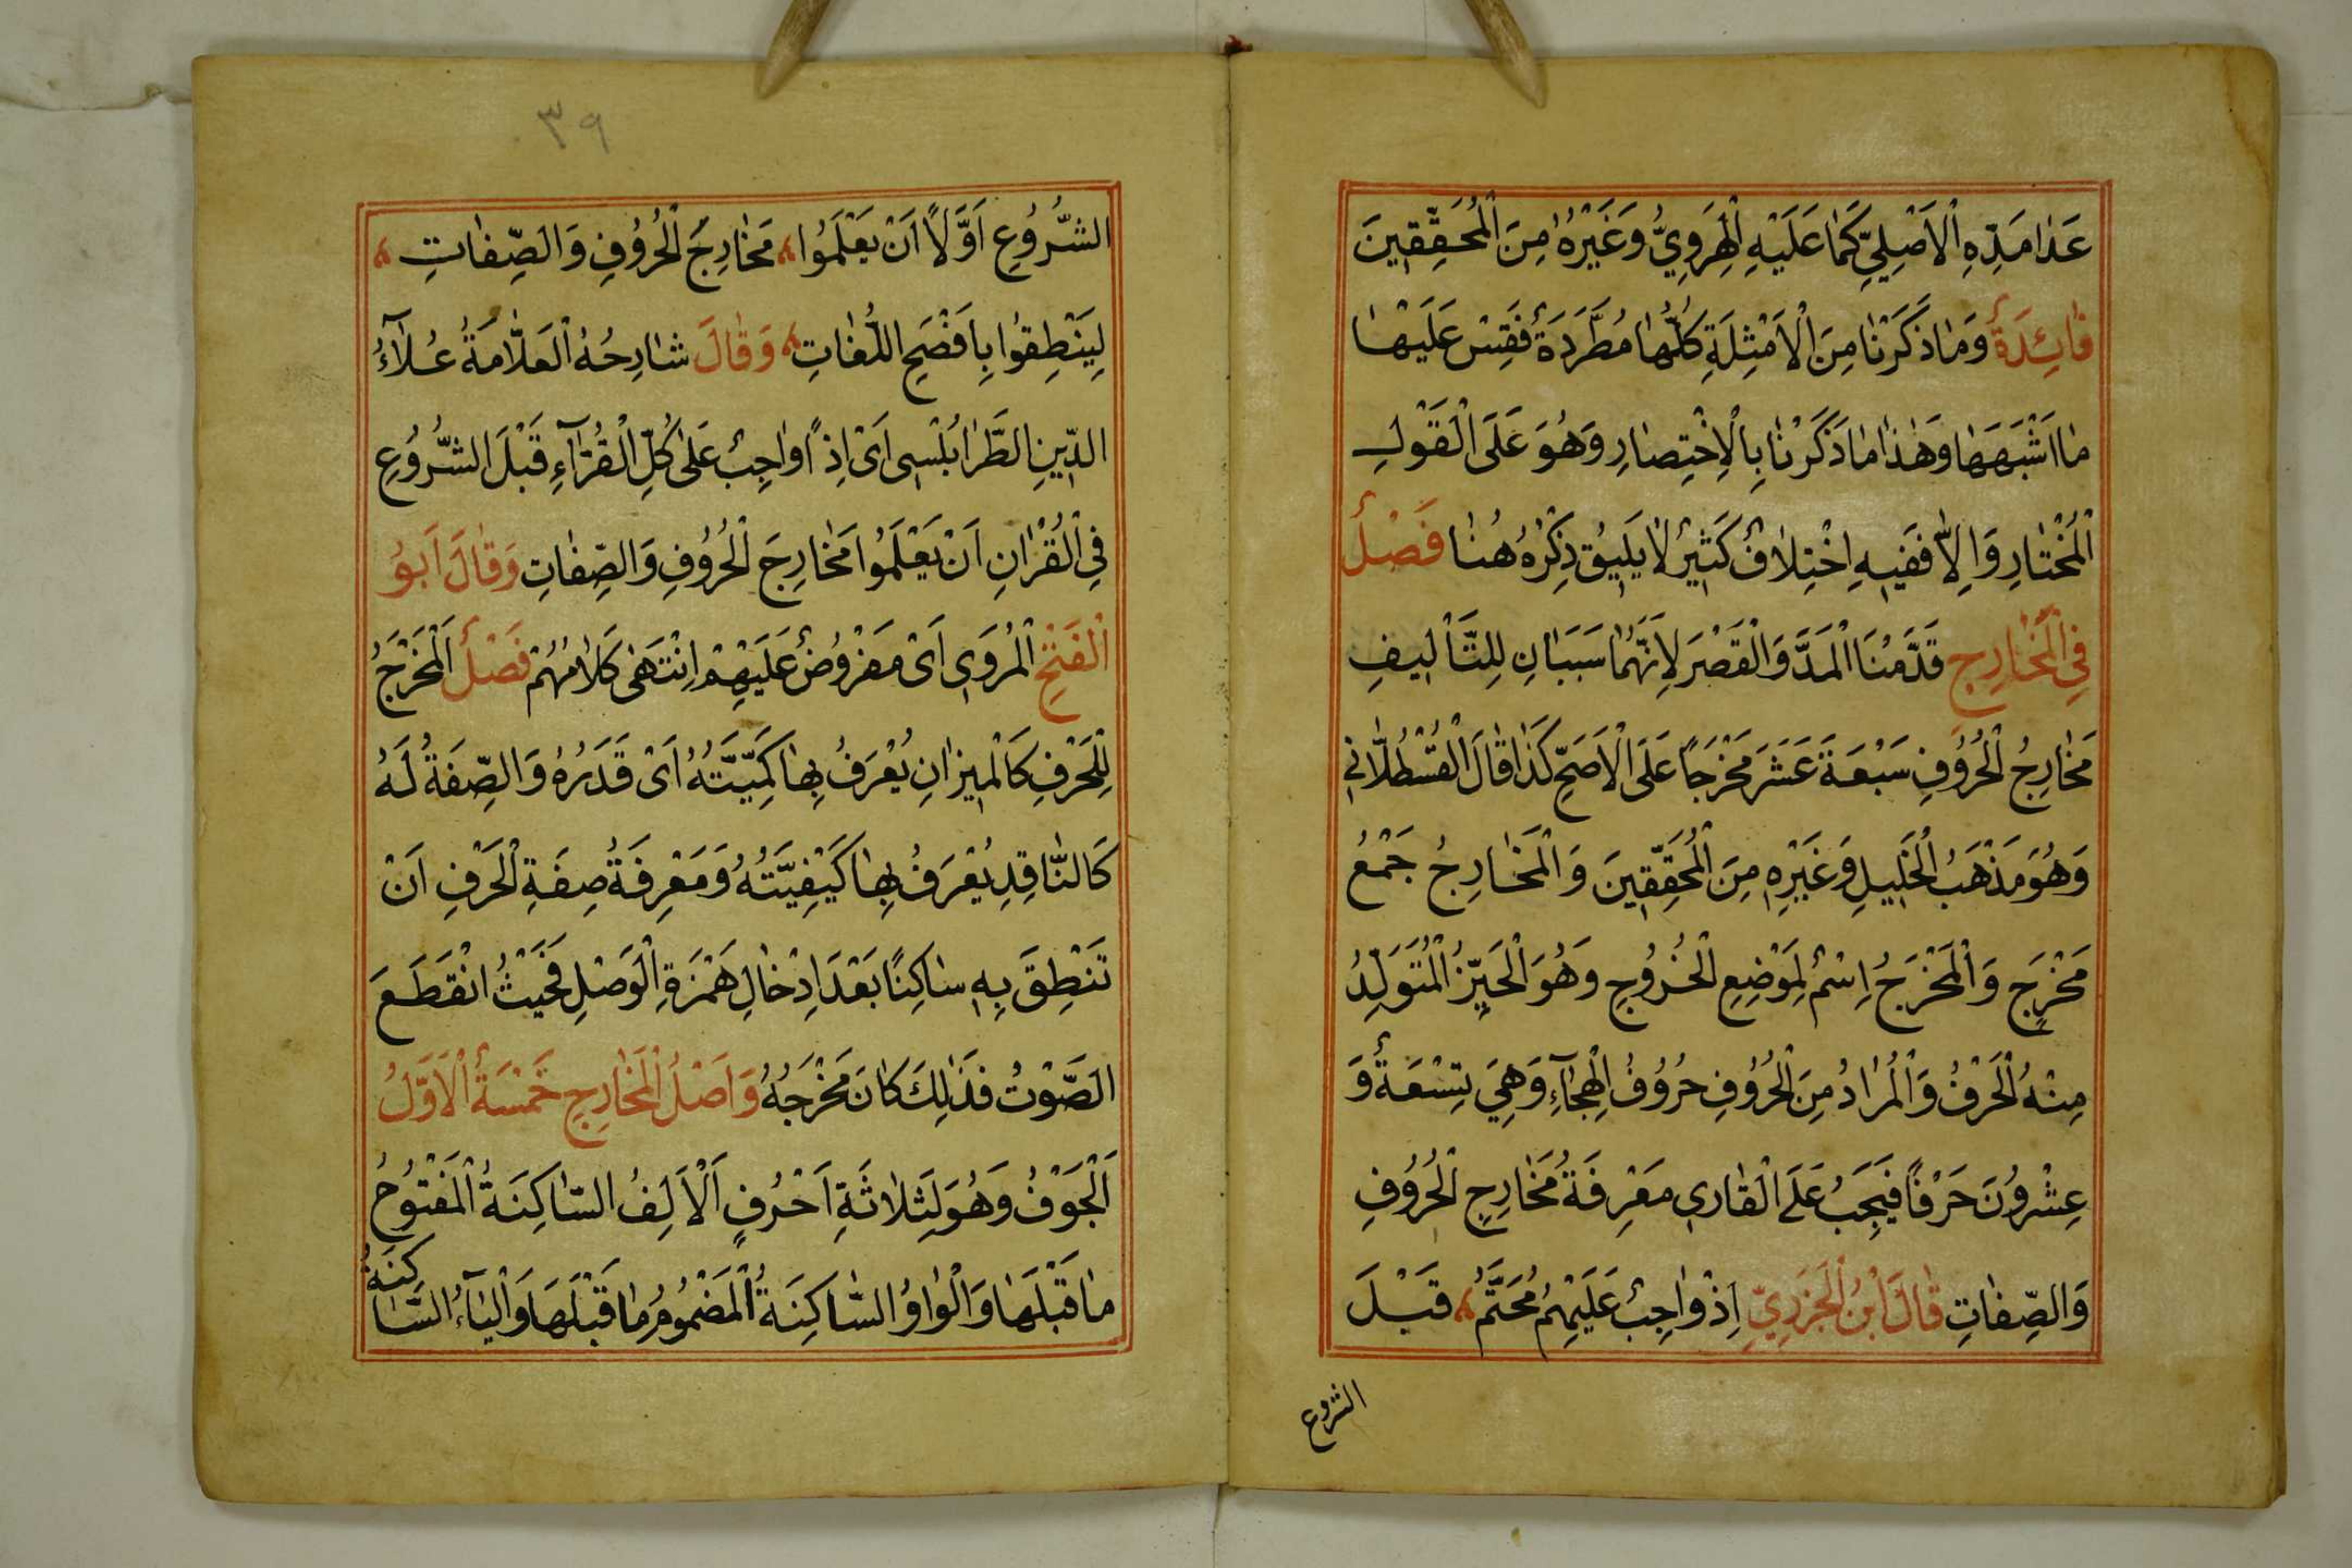 عَدٰا مَدِّهِ اْلاَصْلِيِّ كَمٰا عَلَيْهِ الْهِرَوِيُّ وَغَيْرُهُ مِنَ الْمُحَقِّقٖينَ
فٰائِدَةٌ وَمٰا ذَكَرْنٰا مِنَ اْلاَمْثِلَةِ كُلُّهٰا مُطَّرَدَةٌ فَقِسْ عَلَيْهٰا
مٰا اَشْبَهَهٰا وَهٰذٰا مٰا ذَكَرْنٰا بِاْلاِخْتِصٰارِ وَهُوَ عَلَى الْقَوْلِ
الْمُخْتٰارِ وَاِلاّٰ فَفٖيهِ اِخْتِلاٰفٌ كَثٖيرٌ لاٰ يَلٖيقُ ذِكْرُهُ هُنٰا فَصْلٌ
فِي الْمَخٰارِجِ قَدَّمْنَا الْمَدَّ وَالْقَصْرَ لِاَنَّهُمٰا سَبَبٰانِ لِلتَّأْلٖيفِ
مَخٰارِجُ الْحُرُوُفِ سَبْعَةَ عَشَرَ مَخْرَجًا عَلَى اْلاَصَحِّ كَذٰا قٰالَ الْقُسْطُلّٰانٖي
وَهُوَ مَذْهَبُ الْخَلٖيلِ وَغَيْرِهٖ مِنَ الْمُحَقِّقٖينَ وَالْمَخٰارِجُ جَمْعُ
مَخْرَجٍ وَالْمَخْرَجُ اِسْمٌ لِمَوْضِعِ الْخُرُوُجِ وَهُوَ الْحَيِّزُ الْمُتَوَلِّدُ
مِنْهُ الْحَرْفُ وَالْمُرٰادُ مِنَ الْحُرُوُفِ حُرُوُفُ الْهِجٰآءِ وَهِيَ تِسْعَةٌ وَ
عِشْرُوُنَ حَرْفًا فَيَجِبُ عَلَى الْقٰارٖي مَعْرِفَةُ مَخٰارِجِ الْحُرُوُفِ
وَالصِّفٰاتِ قٰالَ ابْنُ الْجَزَرِيِّ اِذْ وٰاجِبٌ عَلَيْهِمُ مُحَتَّمُ قَبْلَ
الشروع
٣٩
الشُّرُوُعِ اَوَّلًا اَنْ يَعْلَمُوُا مَخٰارِجَ الْحُرُوُفِ وَالصِّفٰاتِ
لِيَنْطِقُوُا بِاَفْصَحِ اللُّغٰاتِ وَقٰالَ شٰارِحُهُ الْعَلّٰامَةُ عُلاٰءُ
الدّٖينِ الطَّرٰابُلْسٖى اَىْ اِذًا وٰاجِبٌ عَلٰى كُلِّ الْقُرّٰآءِ قَبْلَ الشُّرُوُعِ
فِي الْقُرْاٰنِ اَنْ يَعْلَمُوُا مَخٰارِجَ الْحُرُوُفِ وَالصِّفٰاتِ وَقٰالَ اَبُوُ
الْفَتْحِ الْمُرَوٖى اَىْ مَفْرُوُضٌ عَلَيْهِمْ اِنْتَهٰى كَلاٰمُهُمْ فَصْلٌ اَلْمَخْرَجُ
لِلْحَرْفِ كَالْمٖيزٰانِ يُعْرَفُ بِهٰا كَمِّيَّتُهُ اَىْ قَدَرُهُ وَالصِّفَةُ لَهُ
كَالنّٰاقِدِ يُعْرَفُ بِهٰا كَيْفِيَّتُهُ وَمَعْرِفَةُ صِفَةِ الْحَرْفِ اَنْ
تَنْطِقَ بِهٖ سٰاكِنًا بَعْدَ اِدْخٰالِ هَمْزَةِ الْوَصْلِ فَحَيْثُ انْقَطَعَ
الصَّوْتُ فَذٰلِكَ كٰانَ مَخْرَجُهُ وَاَصْلُ الْمَخٰارِجِ خَمْسَةٌ اْلاَوَّلُ
اَلْجَوْفُ وَهُوَ لِثَلاٰثَةِ اَحْرُفٍ اَلْاَلِفُ السّٰاكِنَةُ الْمَفْتُوُحُ
مٰا قَبْلَهٰا وَالْوٰاوُ السّٰاكِنَةُ الْمَضْمُوُمُ مٰا قَبْلَهٰا وَالْيٰآءُ السّٰاكِنَةُ